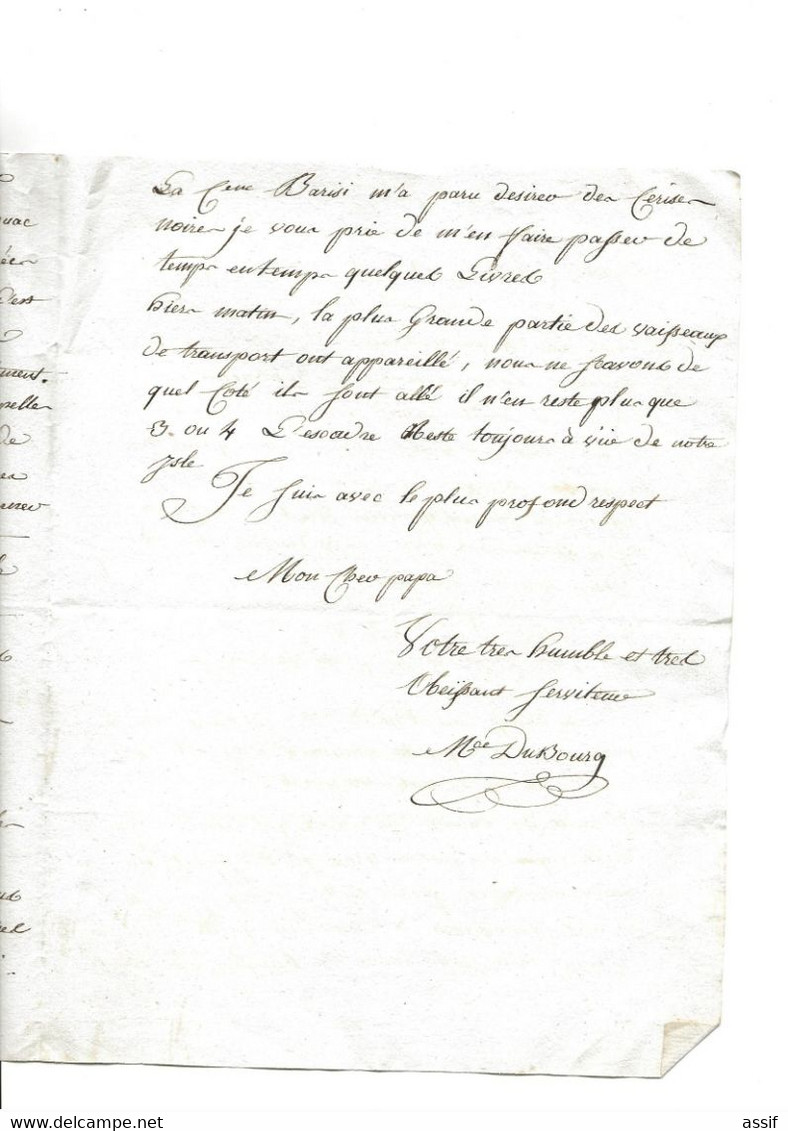 La Cene Barisi m'a paru desirer des Cerises
noires je vous prie de m'en faire passer de
temps entemps quelques Livres
hier matin, la plus Grande partie des vaisseaux
de transport ont appareillé, nous ne scavons de
quel Coté ils sont allé il n'en reste plus que
3. ou 4 L'escadre Reste toujours à vüe de notre
Isle
Je suis avec le plus profond respect
Mon Cher papa
Votre tres humble et tres
Obeissant serviteur
Mce DuBourg
uac
ment.
de
www.delcampe.net
assif